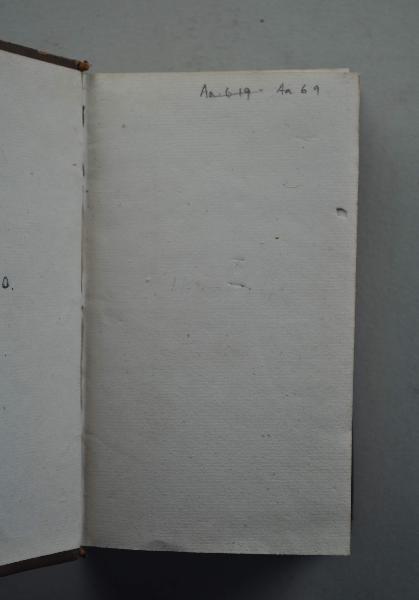 Aa 6 19. Aa 6 9